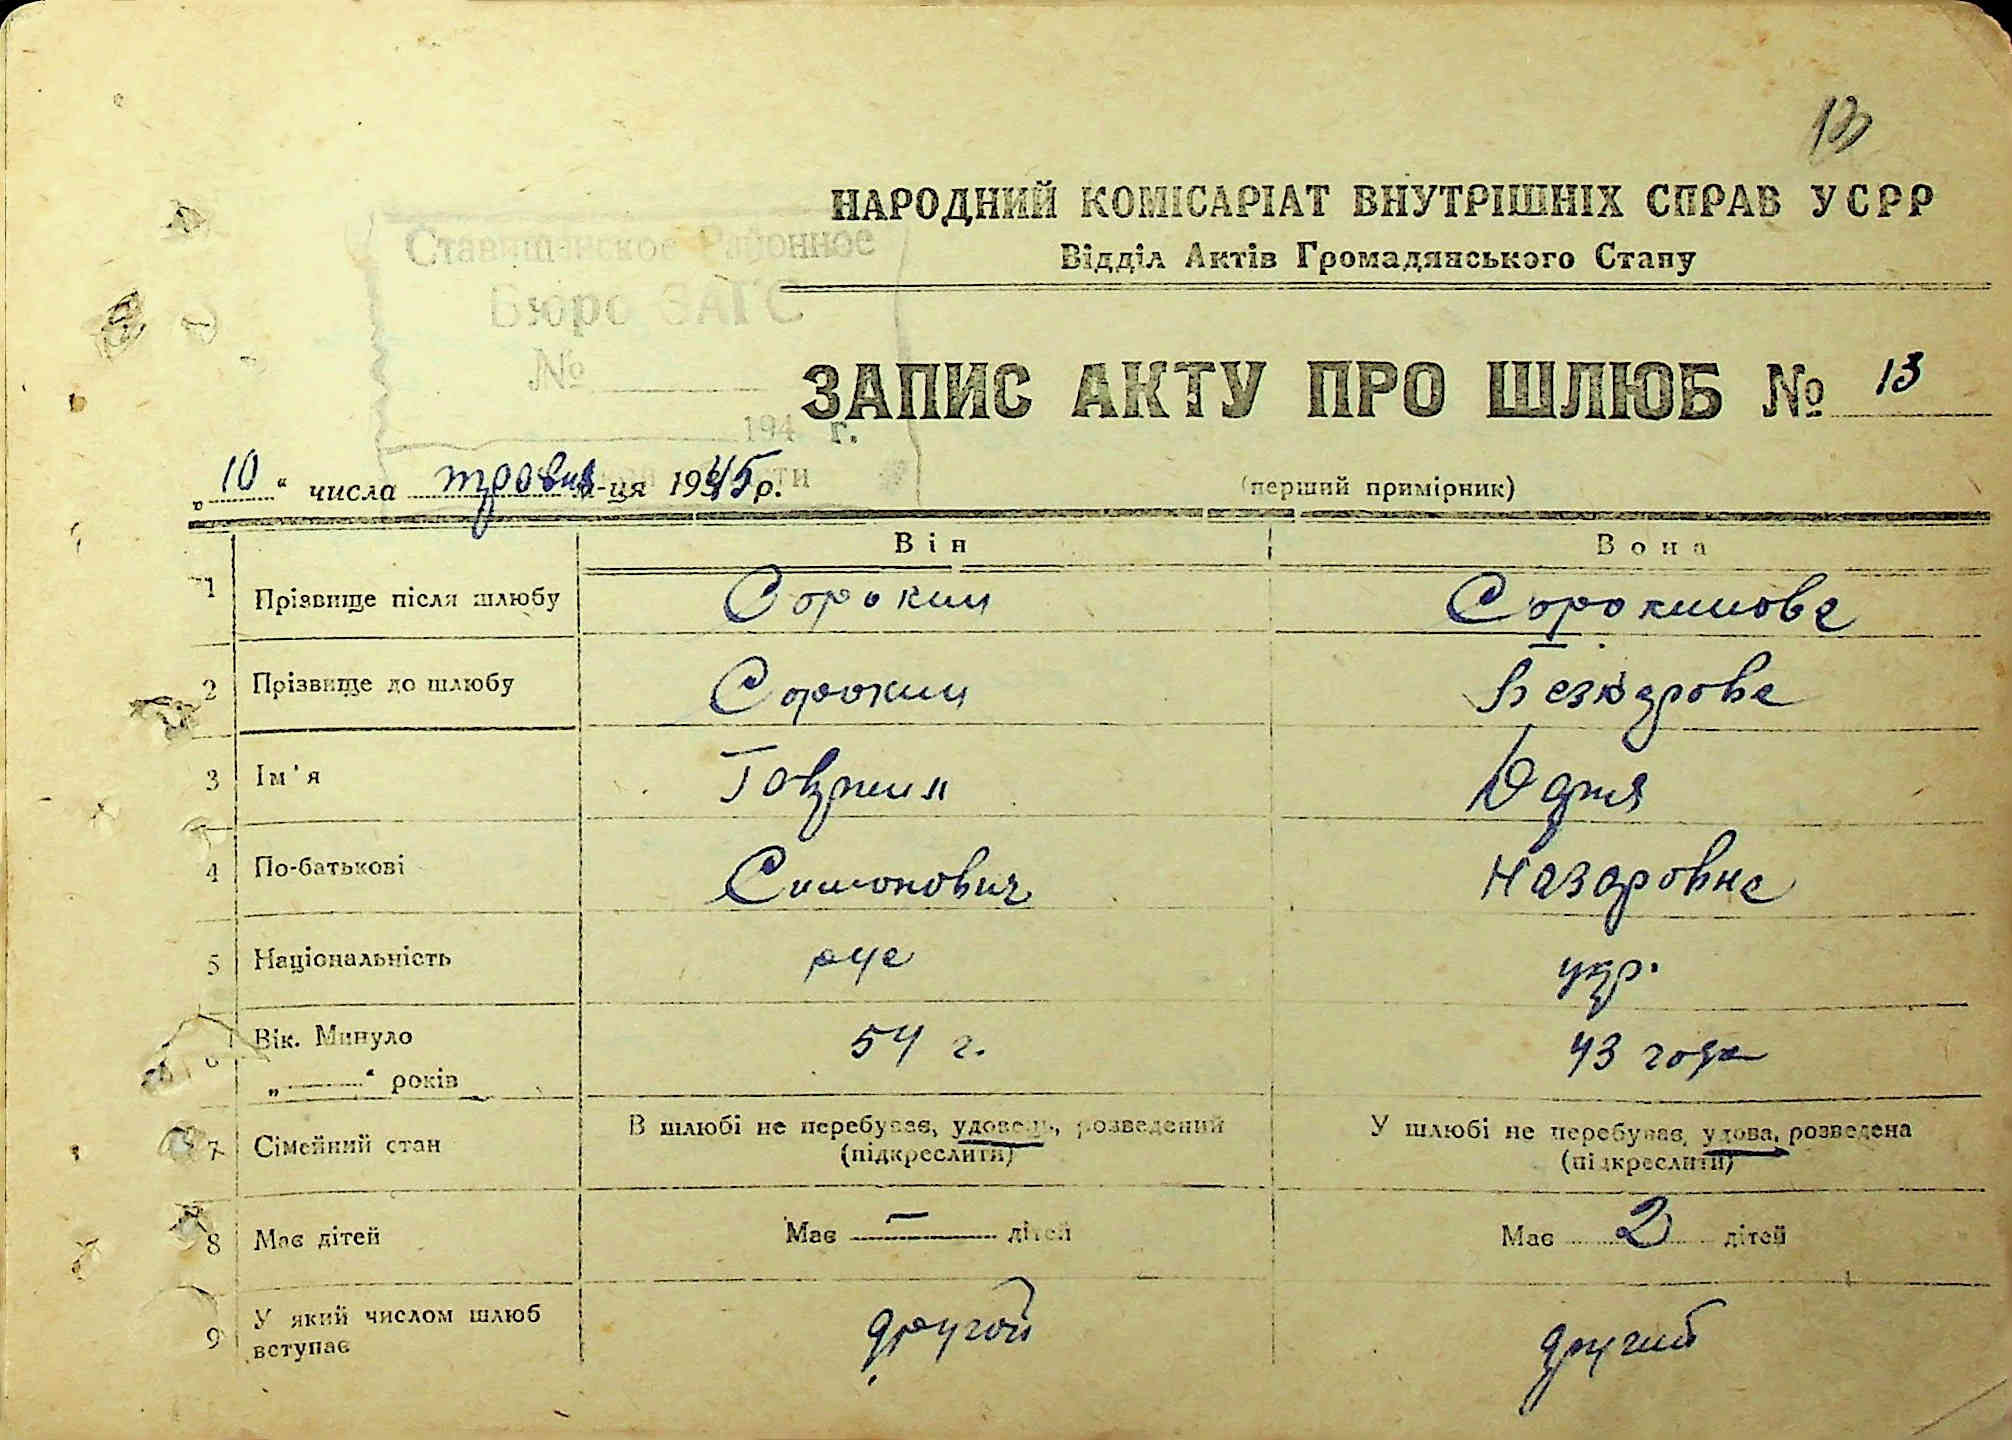 13
НАРОДНИЙ КОМІСАРІАТ ВНУТРІШНІХ СПРАВ УСРР
Відділ Актів Громадянського Стану
Ставищанское Районное
Бюро ЗАГС
№
194 г.
ЗАПИС АКТУ ПРО ШЛЮБ № 13
„10“ числа травня м-ця 1945р.
(перший примірник)
Він Вона
1 Прізвище після шлюбу Сорокин Сорокинова
2 Прізвище до шлюбу Сорокин
3 Ім'я Гаврил
4 По-батькові Симонович Назаровна
5 Національність рус укр.
Вік. Минуло 54 г. 43 года
„ “ років
7 Сімейний стан В шлюбі не перебуває, удовець, розведений У шлюбі не перебуває, удова, розведена
(підкреслити) (підкреслити)
8 Має дітей Має — дітей Має 2 дітей
9 У який числом шлюб вступає другой другий